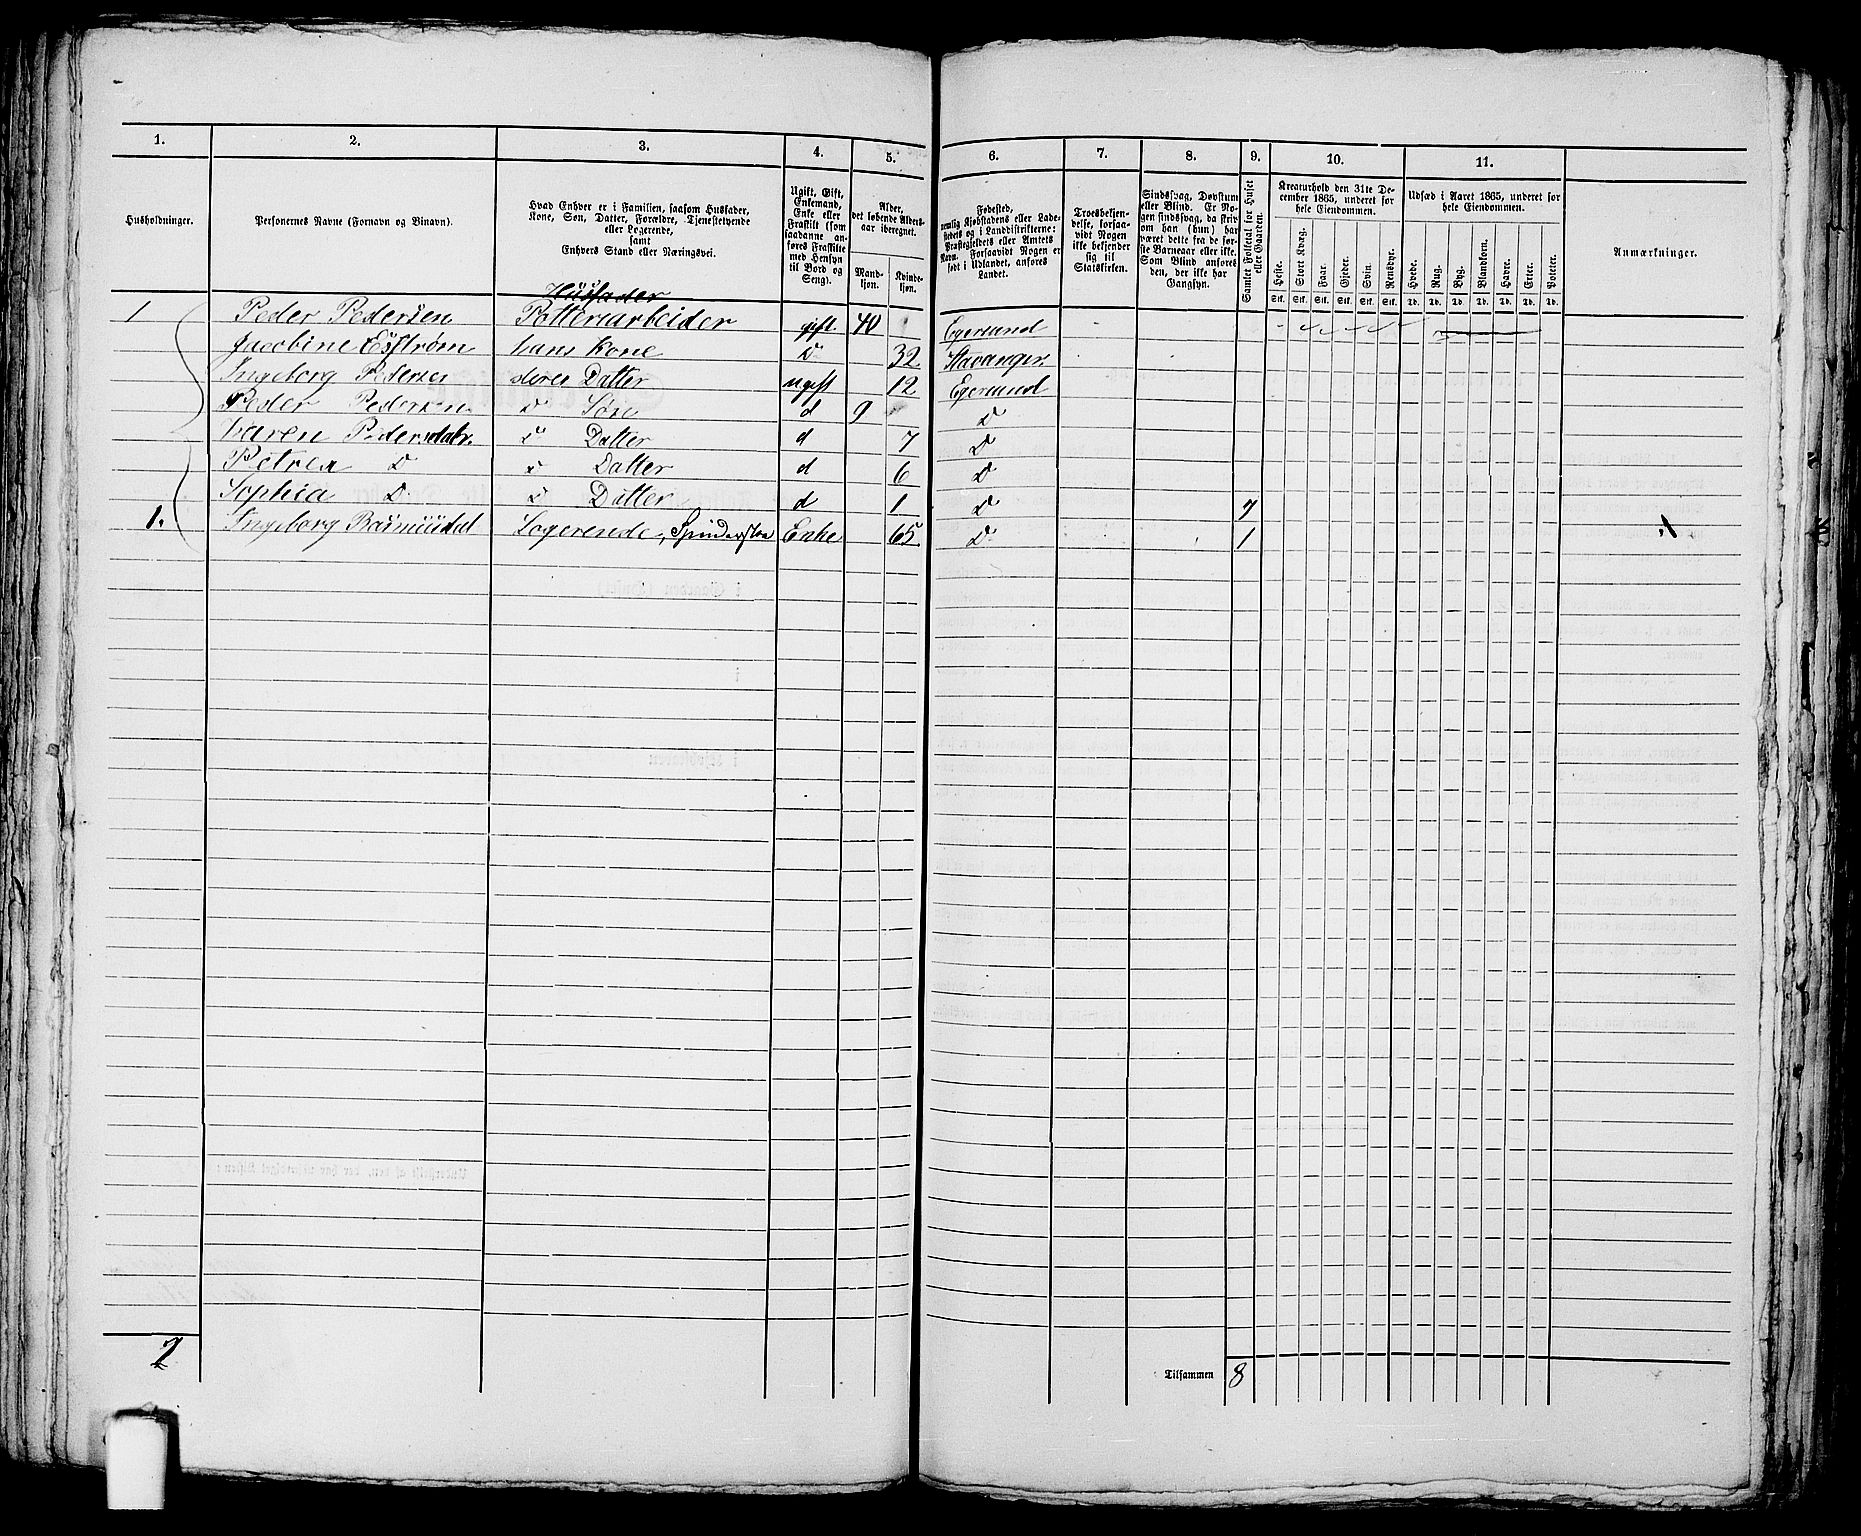 1. 2. 3. 4. 5. 6. 7. 8. 9. 10. 11.
Husholdninger.
Personernes Navne (Fornavn og Binavn).
Hvad Enhver er i Familien, saasom Husfader,
Kone, Søn, Datter, Forældre, Tjenestetyende
eller Logerende,
samt
Enhvers Stand eller Næringsvei.
Ugift, Gift,
Enkemand,
Enke eller
Fraskilt (som
saadanne an-
føres Fraskilte
med Hensyn
til Bord og
Seng).
Alder,
det løbende Alders-
aar iberegnet.
Mand-
kjøn.
Kvinde-
kjøn.
Fødested,
nemlig Kjøbstadens eller Lade-
stedets og i Landdistrikterne:
Præstegjeldets eller Amtets
Navn. Forsaavidt Nogen er
født i Udlandet, anføres
Landet.
Troesbekjen-
delse, forsaa-
vidt Nogen
ikke bekjender
sig til
Statskirken.
Sindssvag, Døvstum
eller Blind. Er No-
gen sindssvag, da skriv
han (hun) har
været dette fra de før-
ste Barneaar eller ikke.
Som Blind anføres
den, der ikke har
Gangsyn.
Samlet Folketal for Huset
eller Gaarden.
Kreaturhold den 31te De-
cember 1865, underet for
hele Eiendommen.
Heste. Stort Kvæg. Faar. Gjeder. Svin. Rensdyr.
Stk. Stk. Stk. Stk. Stk. Stk.
Udsæd i Aaret 1865, underet for
hele Eiendommen.
Hvede. Rug. Byg. Blandkorn. Havre. Erter. Poteter.
Td. Td. Td. Td. Td. Td. Td.
Anmærkninger.
Husfader
1 Peder Pedersen Potteriarbeider gift 40 Egersund
Jacobine hans Kone D 32 Stavanger
Ingeborg Pedersen deres Datter ugift 12 Egersund
Peder Pedersen D Søn d 9 D
Karen Pedersdatr. D Datter d 7 D
Petrea D D Datter d 6 D
Sophia D D Datter d 1 D 7
1. Ingeborg Logerende, Enke 65 D 1
2 Tilsammen 8